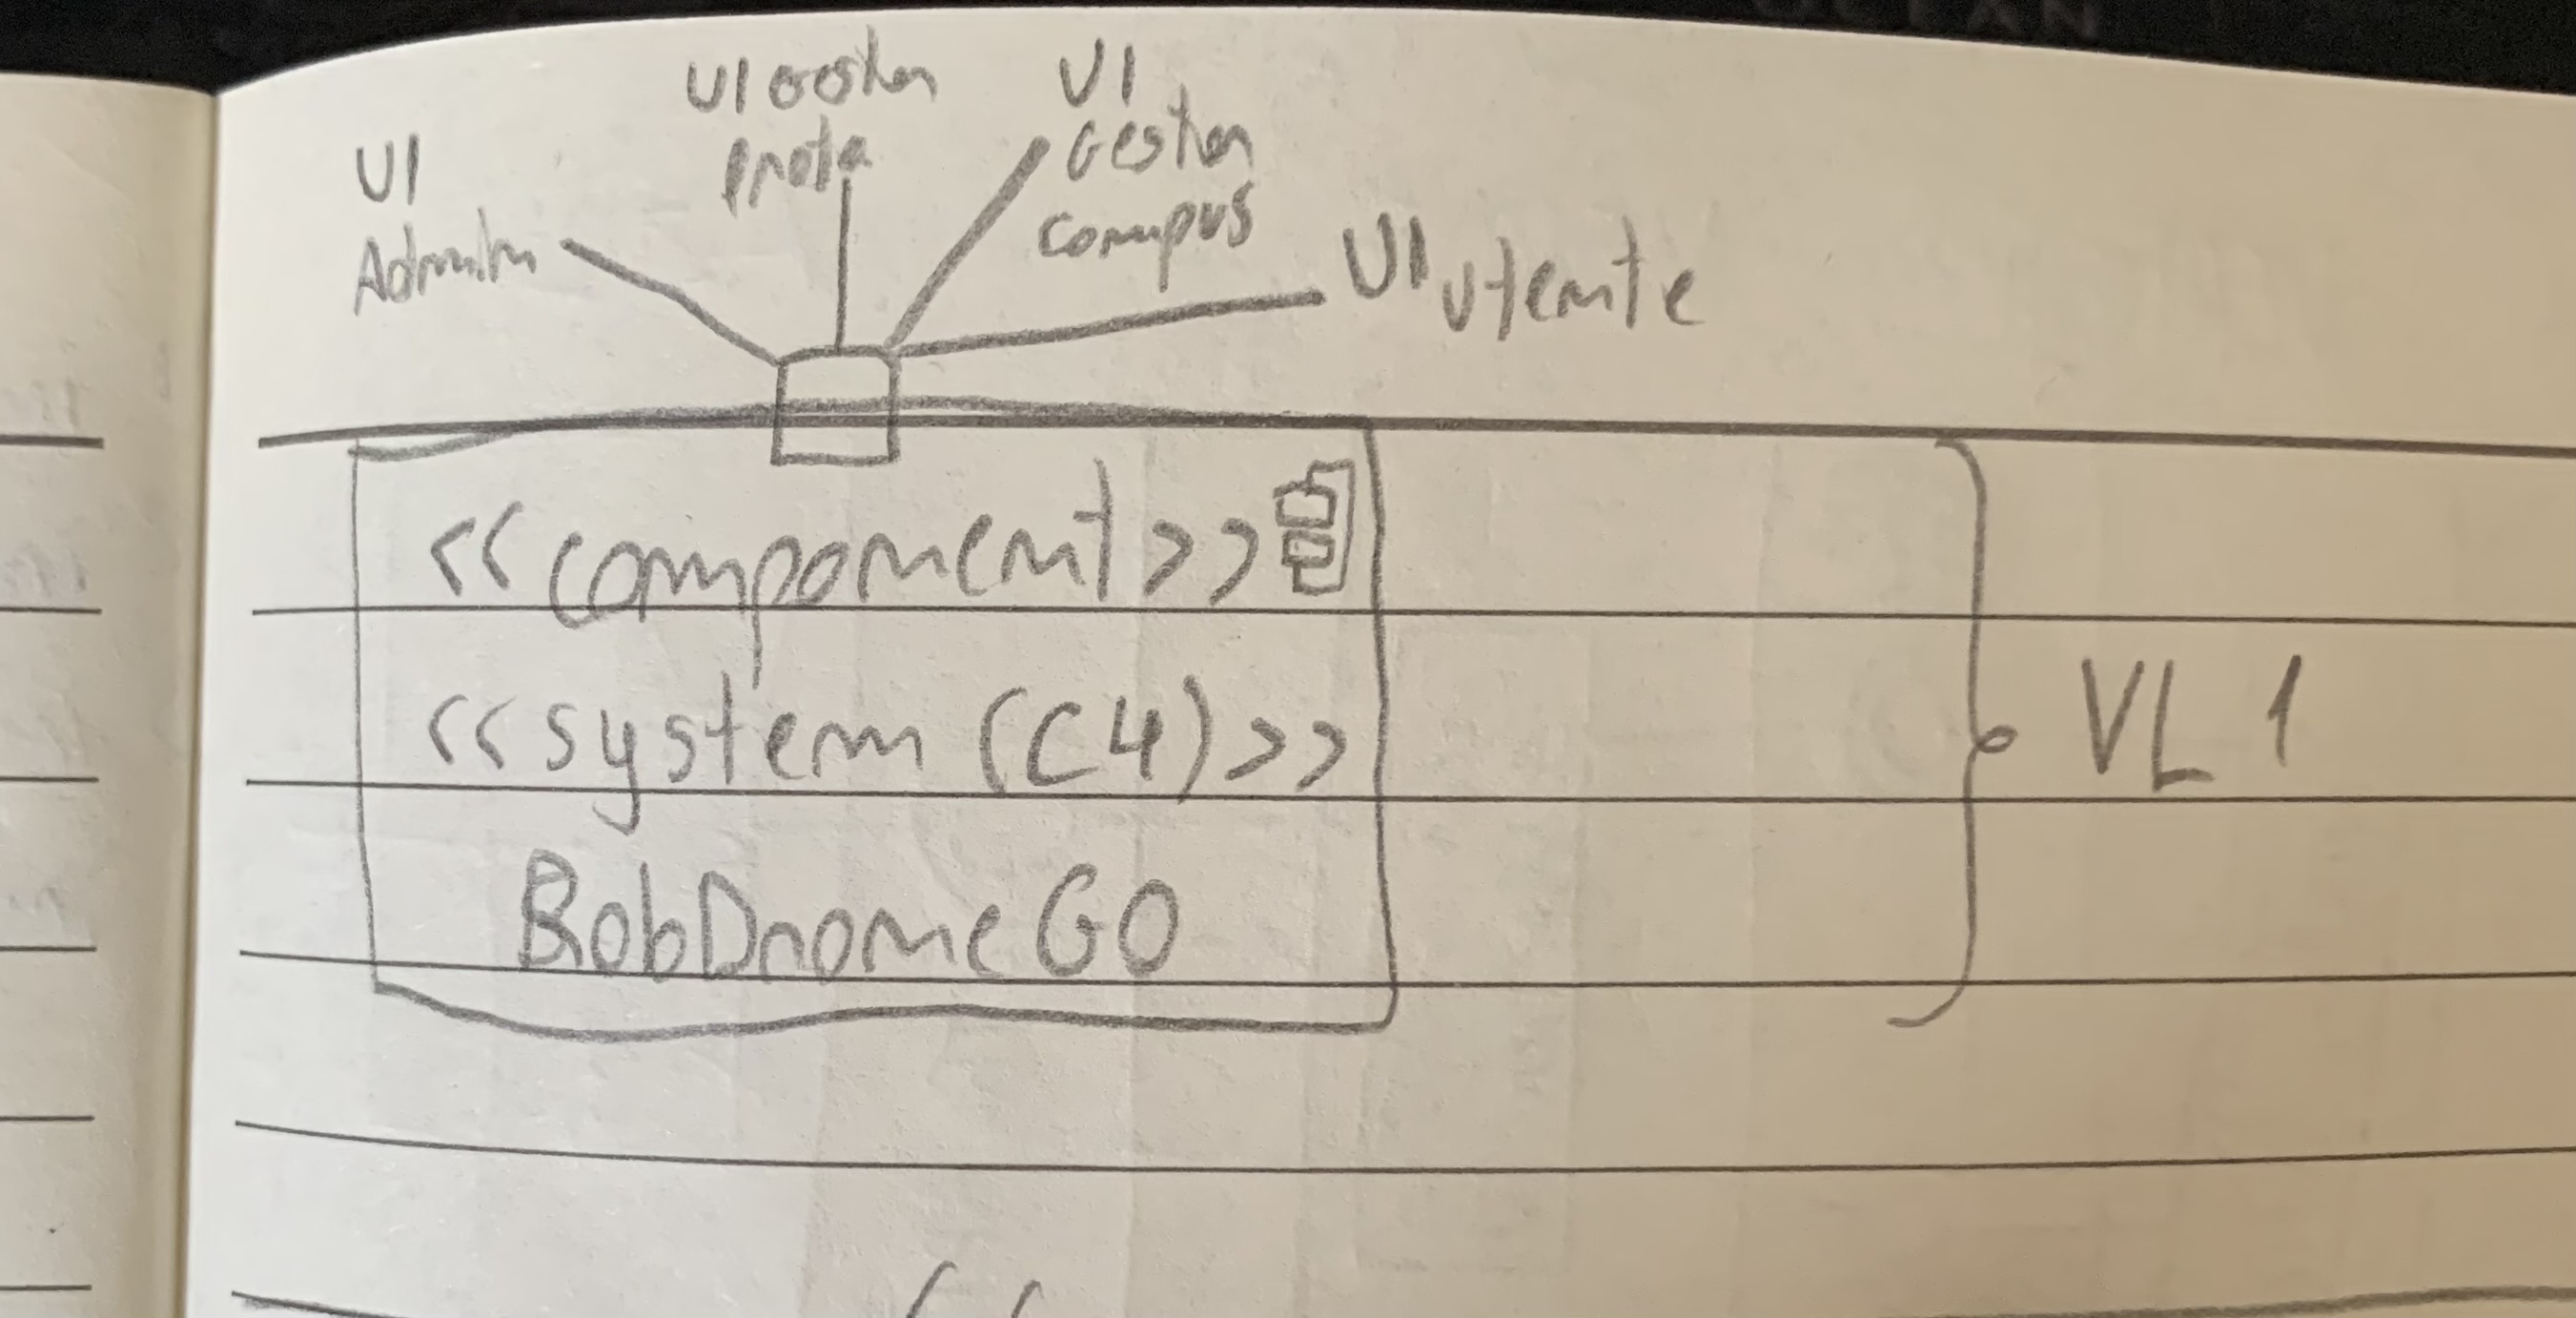 OCEAN
UI
Admin
UI Gestor
Frota
UI
Gestor
Campus
UI Utente
<<component>>
<<system (C4)>>
RobDroneGO
VL 1
<<